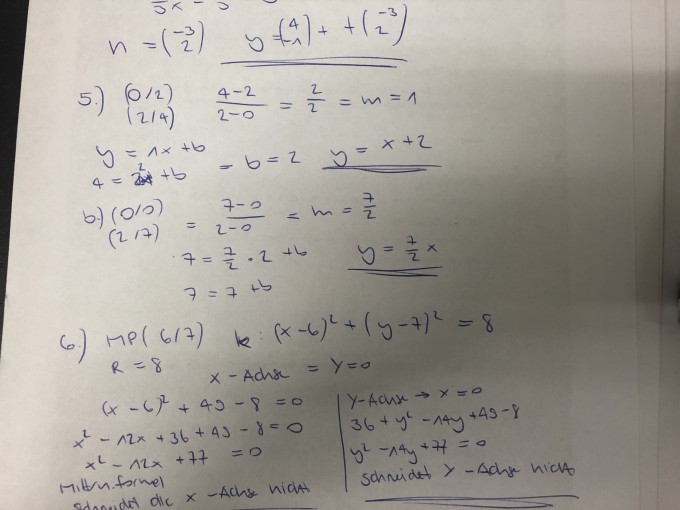 n = (-3 2) y = (4 -1) + t (-3 2)
5.) (0/2) (2/4) 4-2 / 2-0 = 2/2 = m = 1
y = 1x + b
4 = 2 + b = b = 2 y = x + 2
b.) (0/0) (2/7) = 7-0 / 2-0 = m = 7/2
7 = 7/2 · 2 + b y = 7/2 x
7 = 7 + b
6.) MP( 6/7) k: (x-6)² + (y-7)² = 8
R = 8
x-Achse = Y=0
(x-6)² + 49 - 8 = 0
x² - 12x + 36 + 49 - 8 = 0
x² - 12x + 77 = 0
Mittn.formel
schneidet die x-Achse nicht
Y-Achse → x = 0
36 + y² - 14y + 49 - 8
y² - 14y + 77 = 0
schneidet Y-Achse nicht